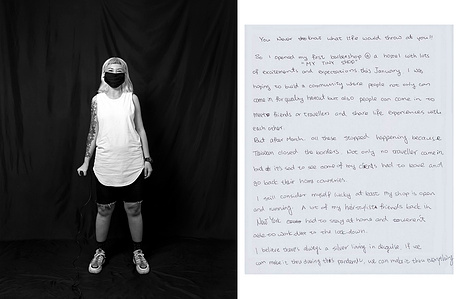 You never know what life would throw at you!!
So I opened my first barbershop @ a hostel with lots
"MY TINY SHOP"
of excitements and expectations this January. I was
hoping to build a community where people not only can
come in for quality haircut but also people can come in to
meet friends or travellers and share life experiences with
each other.
But after March all these stopped happening because
Taiwan closed the borders. Not only no traveller came in
but it's sad to see some of my clients had to leave and
go back their home countries.
I still consider myself lucky at least my shop is open
and running. A lot of my hairstylists friends back in
New York had to stay at home and weren't
able to work due to the lockdown.
I believe there's always a silver lining in disguise. If we
can make it thru during this pandemic, we can make it thru everything